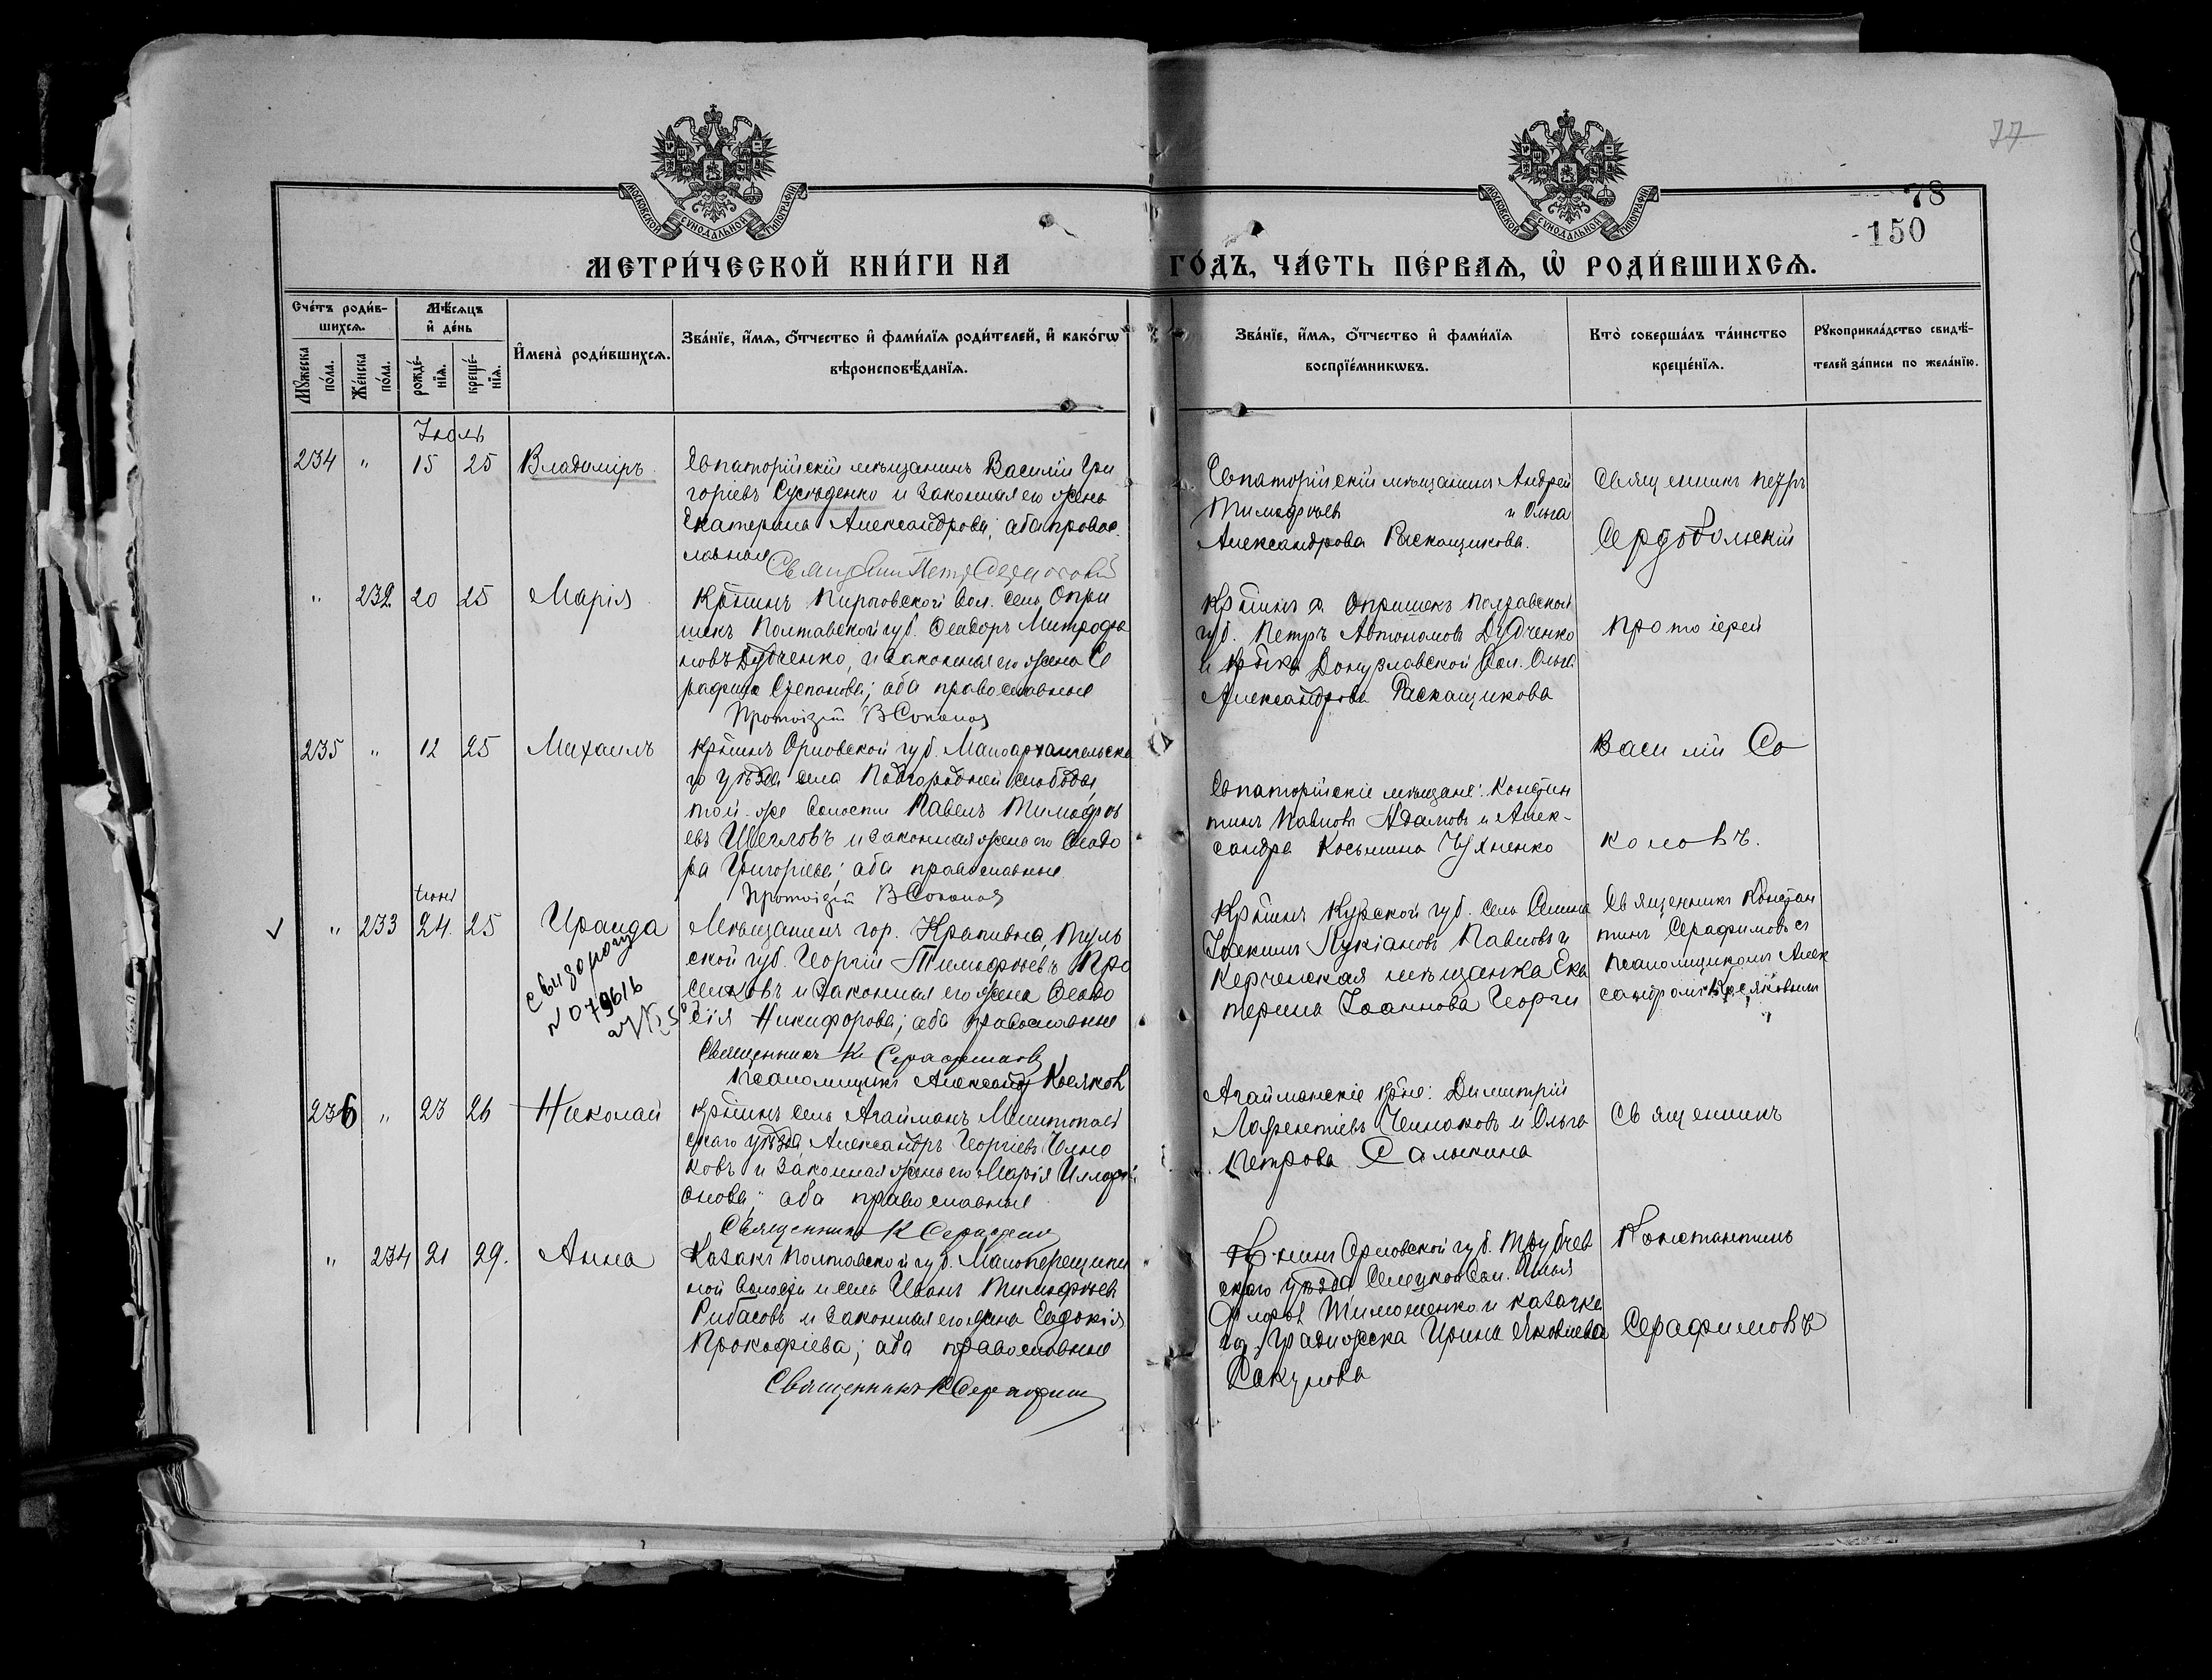 77
78
150
МОСКОВСКОЙ СѴНОДАЛЬНОЙ ТИПОГРАФІИ
МОСКОВСКОЙ СѴНОДАЛЬНОЙ ТИПОГРАФІИ
МЕТРИ́ЧЕСКОЙ КНИ́ГИ НА
ГО́ДЪ, ЧА́СТЬ ПЕ́РВАѦ, Ѽ РОДИ́ВШИХСѦ.
Сче́тъ роди́в-
шихсѧ.
Мꙋ́жеска по́ла.
Же́нска по́ла.
Мѣ́сѧцъ
и҆ де́нь
рожде́-
нїѧ.
креще́-
нїѧ.
И҆мена̀ роди́вшихсѧ.
Зва́нїе, и҆́мѧ, ѻ҆́тчество и҆ фами́лїѧ роди́телей, и҆ како́гѡ
вѣроисповѣ́данїѧ.
Зва́нїе, и҆́мѧ, ѻ҆́тчество и҆ фами́лїѧ
воспрїе́мникѡвъ.
Кто̀ соверша́лъ та́инство
креще́нїѧ.
Рꙋкоприкла́дство свидѣ́-
телей за́писи по жела́нїю.
Іюль
234 " 15 25 Владиміръ
Евпаторійскій мѣщанинъ Василій Гри
горіевъ Сусѣденко и законная его жена
Екатерина Александрова; оба правос
лавные
Евпаторійскій мѣщанинъ Андрей
Тимофѣевъ и Ольга
Александрова Раскащикова.
Священникъ Петръ
Сердобольскій
" 232 20 25 Марія
Кр͠тинъ Пироговской вол. села Опри
шекъ Полтавской губ. Ѳеодоръ Митрофа
новъ Дудченко, и законная его жена Се
рафима Степанова; оба православные
Протоіерей В Соколов
Кр͠тинъ с. Опришекъ Полтавской
губ. Петръ Автономовъ Дудченко
и кр͠тка Донузлавской вол. Ольга
Александрова Раскащикова
Протоіерей
235 " 12 25 Михаилъ
Кр͠тинъ Орловской губ. Малоархангельска
го уѣзда села Подгородней слободы,
той-же волости Павелъ Тимофѣ
евъ Щегловъ и законная жена его Ѳеодо
ра Григоріева; оба православные
Протоіерей В Соколов
Евпаторійскіе мѣщане: Констан
тинъ Павловъ Адамовъ и Алек-
сандра Косьмина
Василій Со
коловъ.
іюня
" 233 24. 25 Ираида
Мѣщанинъ гор. Крапивна, Туль
ской губ. Георгій Тимофѣевъ Про
селковъ и законная его жена Ѳеодо
сія Никифорова; оба православные
Священникъ К Серафимов
Псаломщикъ Александр Косяков
Кр͠тинъ Курской губ. села
Іоакимъ Лукіановъ Павловъ и
Керченская мѣщанка Ека
терина Іоаннова Георги
Священникъ Констан
тинъ Серафимовъ съ
псаломщикомъ Алек
сандромъ Косяковымъ
236 " 23 26 Николай
Кр͠тинъ села Агайманъ Мелитополь
скаго уѣзда, Александръ Георгіевъ Челно
ковъ и законная жена его Марія Илларі
онова; оба православные
Священникъ К Серафим
Агайманскіе кр͠не: Димитрій
Лаврентіевъ Челноковъ и Ольга
Петрова Салыкина
Священникъ
" 234 21 29. Анна
Казакъ Полтавской губ. Малоперещепи
ной волости и села Иванъ Тимофѣевъ
Рибасовъ и законная его жена Евдокія
Прокофіева; оба православные
Священникъ К Серафим
Кр͠тинъ Орловской губ. Трубчев
скаго уѣзда Селецкой вол. Илья
Тимошенко и казачка
гор. Градижска Ирина Яковлева
Сакунова
Константинъ
Серафимовъ